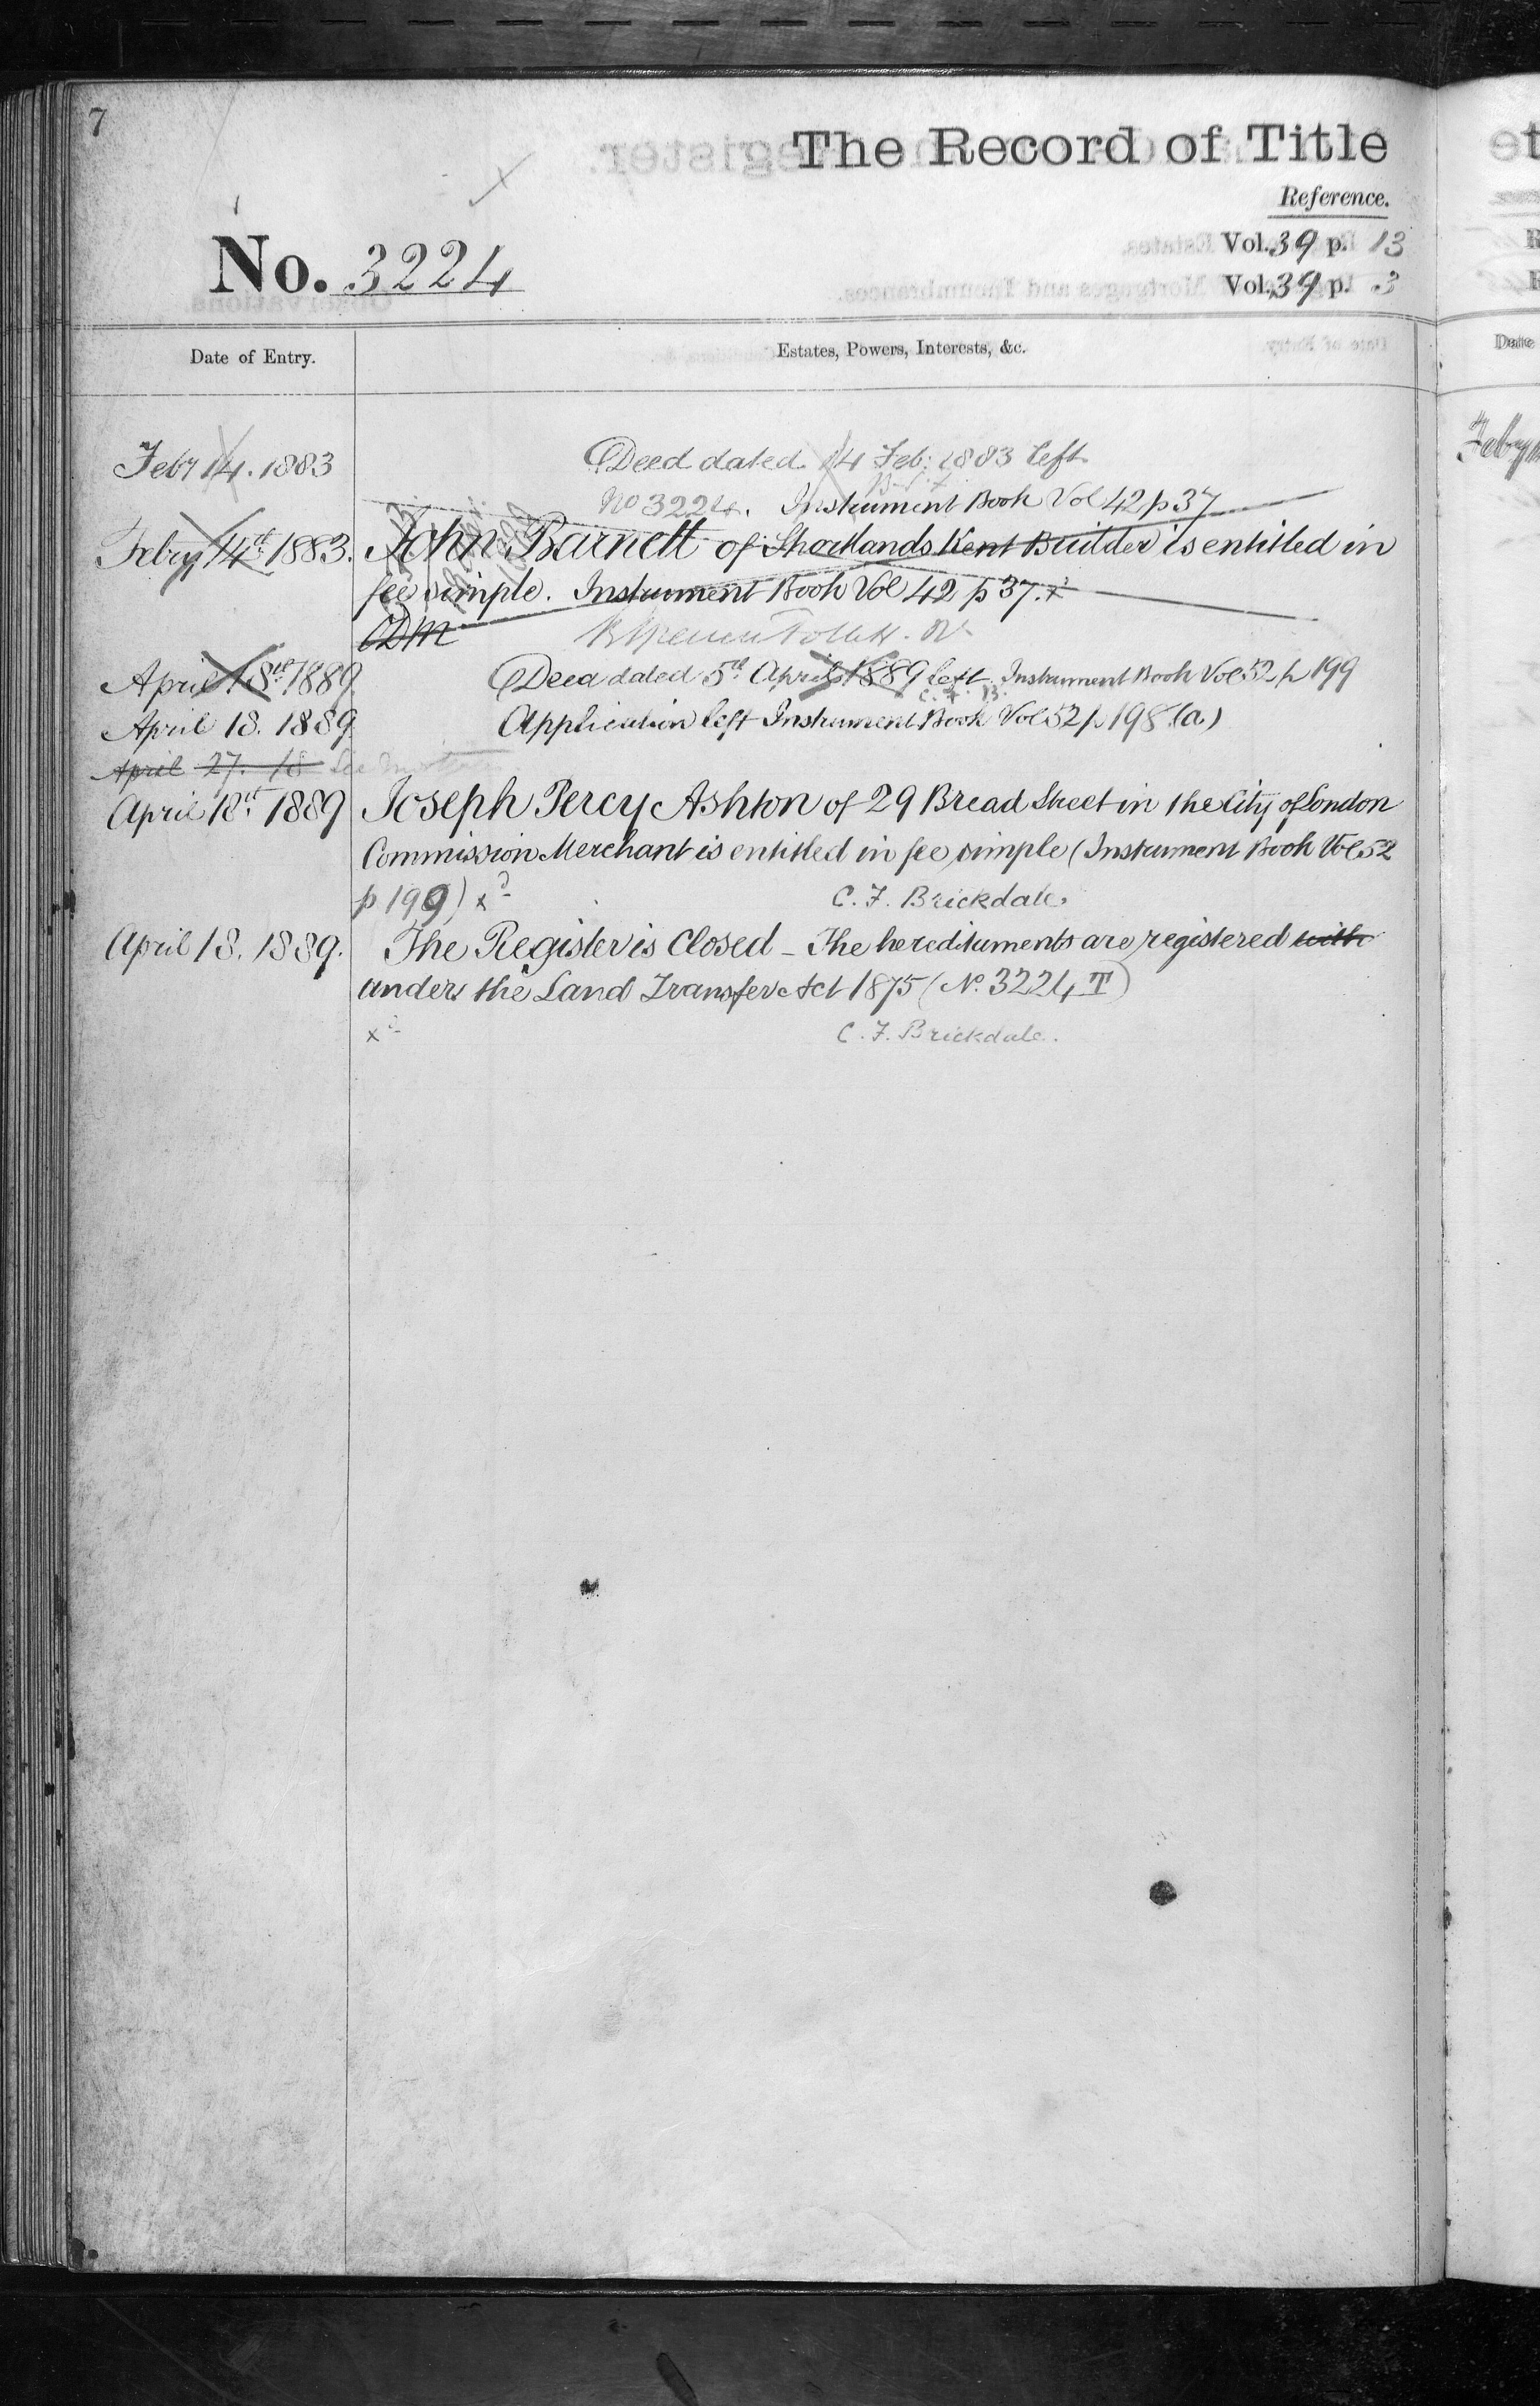 7
The Record of Title
Reference.
Vol. 39 p. 13
No. 3224
Vol. 39 p. 3
Date of Entry.
Estates, Powers, Interests, &c.
Feby 14. 1883
Deed dated 14 Feb: 1883 left
No 3224. Instrument Book Vol 42 p 37
Febry 14th 1883. John Barnett of Shortlands Kent Builder is entitled in
fee simple. Instrument Book Vol 42 p 37. x
April 18th 1889 Deed dated 5th April 1889 left. Instrument Book Vol 52 p 199
C. F. B.
April 18. 1889 Application left Instrument Book Vol 52 p 198 (a)
April 27. 18
April 18th 1889 Joseph Percy Ashton of 29 Bread Street in the City of London
Commission Merchant is entitled in fee simple (Instrument Book Vol 52
p 199) xd C. F. Brickdale.
April 18. 1889. The Register is Closed - The hereditaments are registered with
under the Land Transfer Act 1875 (No. 3224 T)
x C. F. Brickdale.